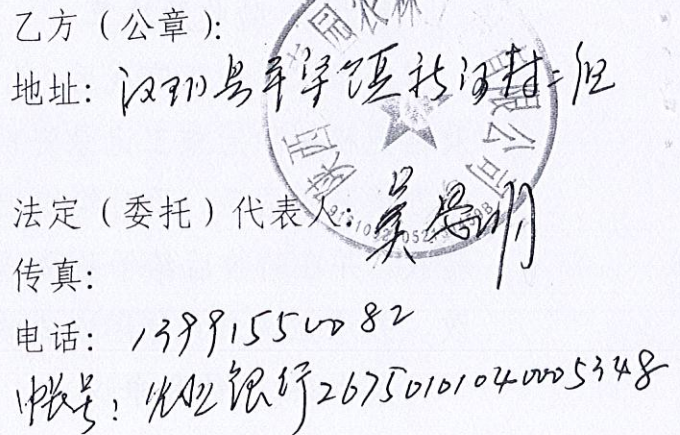 乙方（公章）：
地址：汉阴县平梁镇 村二组
陕西 园农林 有限公司
法定（委托）代表人：吴 明
传真：
电话：13991550082
帐号：农业银行26750101040005348